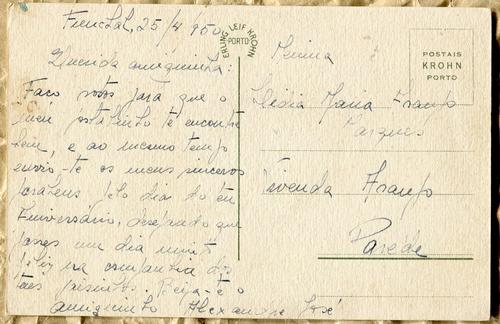 Funchal, 25/4/950
Querida amiguinha:
Faço votos para que o
meu postalinho te encontre
bem, e ao mesmo tempo
envio-te os meus sinceros
parabens pelo dia do teu
Aniversário, desejando que
passes um dia muito
feliz na companhia dos
teus paisinhos. Beija-te o
amiguinho Alexandre José
ERLING LEIF KROHN
PORTO
POSTAIS
KROHN
PORTO
Menina
Lídia Maria Araujo
Marques
Vivenda Araujo
Parede